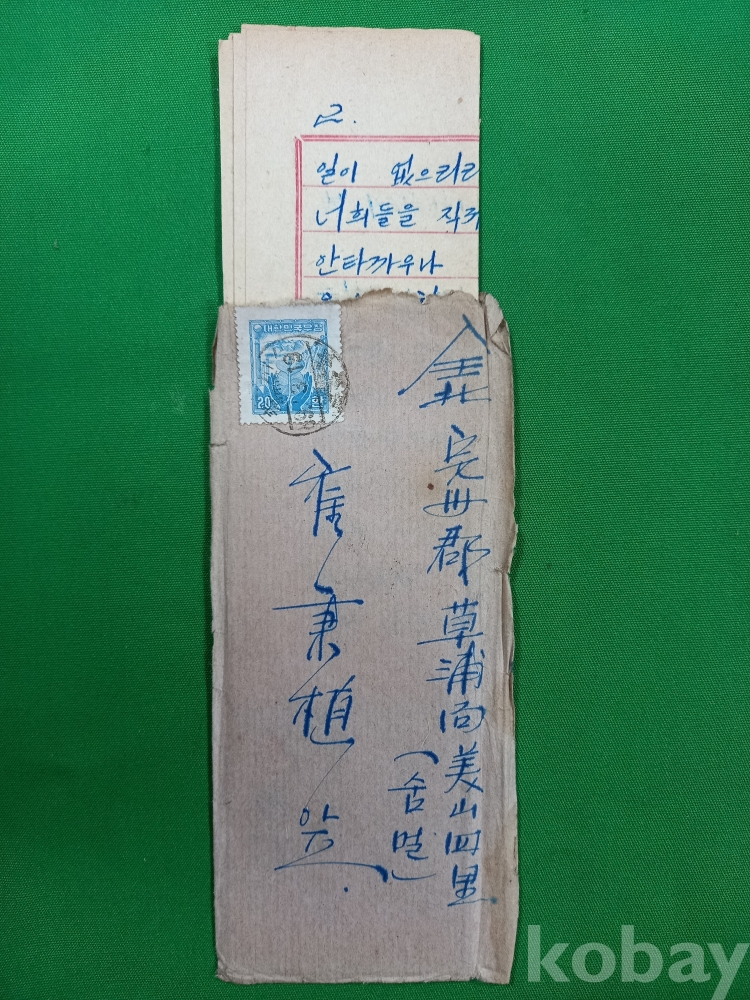 2.
일이 없으리라
너희들을 직
안타까우나
대한민국우표
20 환
全北 完州郡 草浦面 美山四里
(숨멀)
崔秉植 앞.
kobay